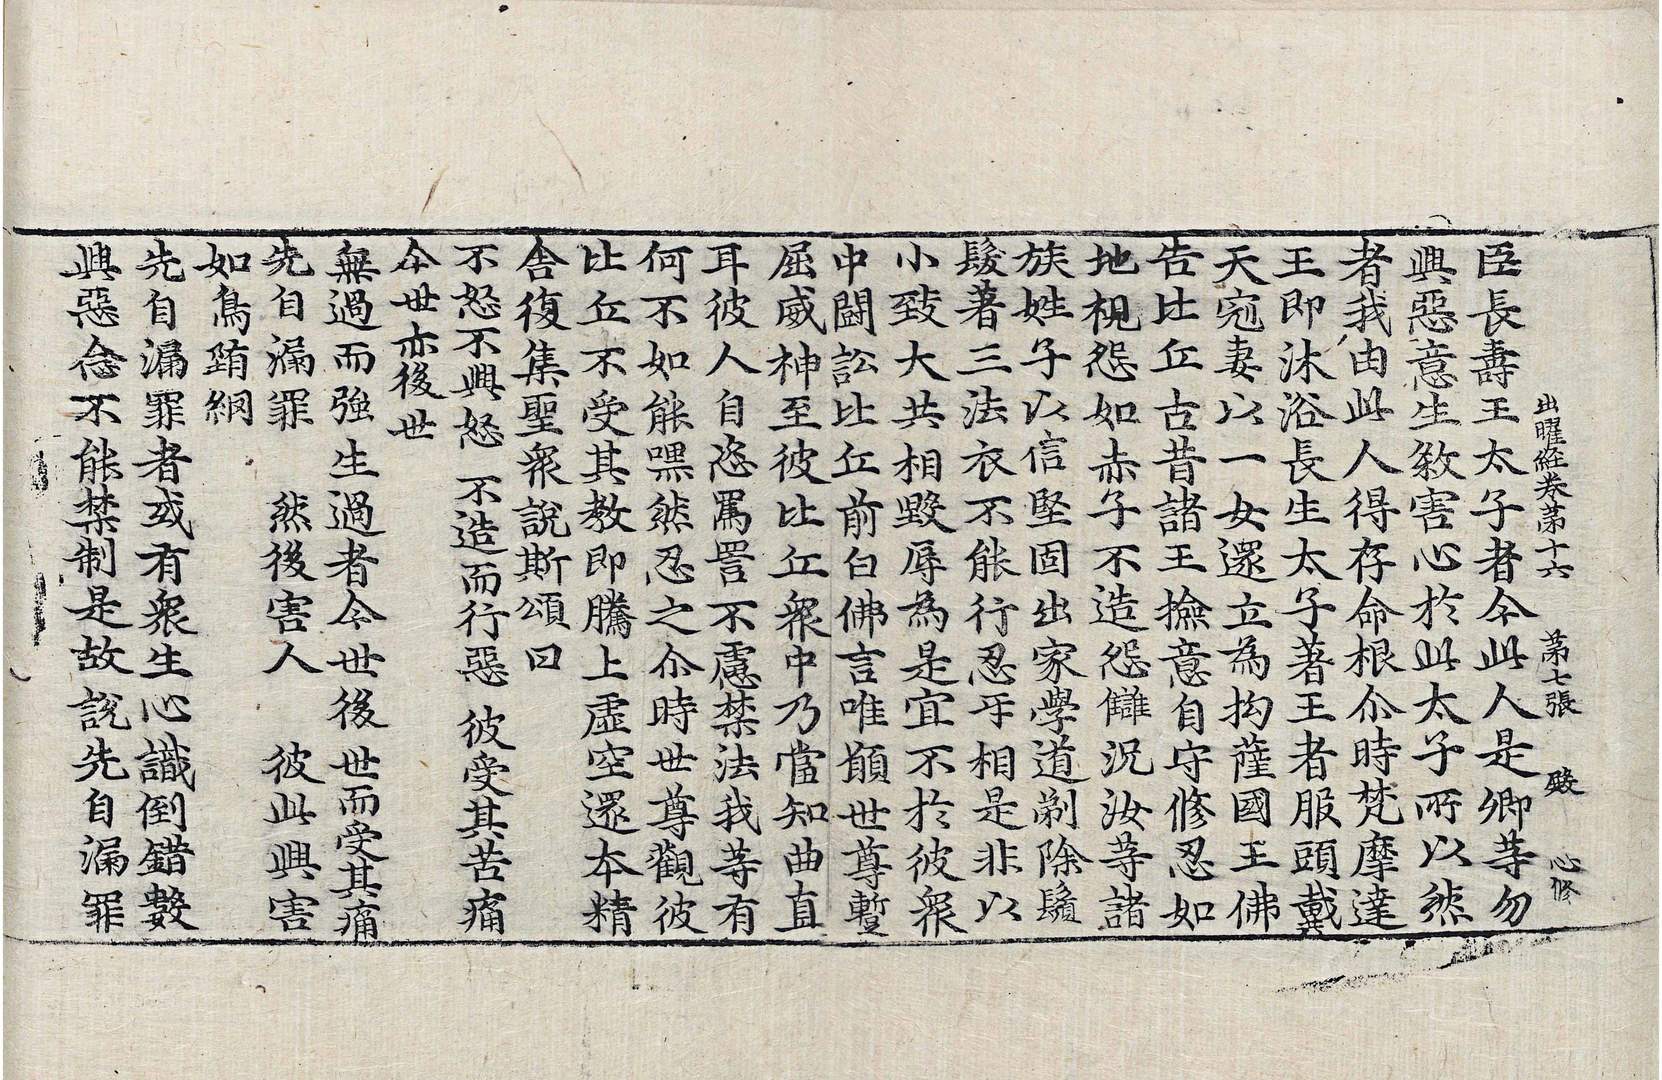 出曜經卷第十六　第七張　殿　心修
臣長壽王太子者今此人是卿等勿
興惡意生煞害心於此太子所以然
者我由此人得存命根尒時梵摩達
王即沐浴長生太子著王者服頭戴
天冠妻以一女還立為拘薩國王佛
告比丘古昔諸王撿意自守修忍如
地視怨如赤子不造怨讎況汝等諸
族姓子以信堅固出家學道剃除鬚
髮著三法衣不能行忍乎相是非以
小致大共相毀辱為是宜不於彼衆
中鬪訟比丘前白佛言唯願世尊暫
屈威神至彼比丘衆中乃當知曲直
耳彼人自恣罵詈不慮禁法我等有
何不如能嘿然忍之尒時世尊觀彼
比丘不受其教即騰上虛空還本精
舍復集聖衆說斯頌曰
不怒不興怒　不造而行惡　彼受其苦痛
今世亦後世
無過而強生過者今世後世而受其痛
先自漏罪　然後害人　彼此興害
如鳥墮網
先自漏罪者或有衆生心識倒錯數
興惡念不能禁制是故說先自漏罪